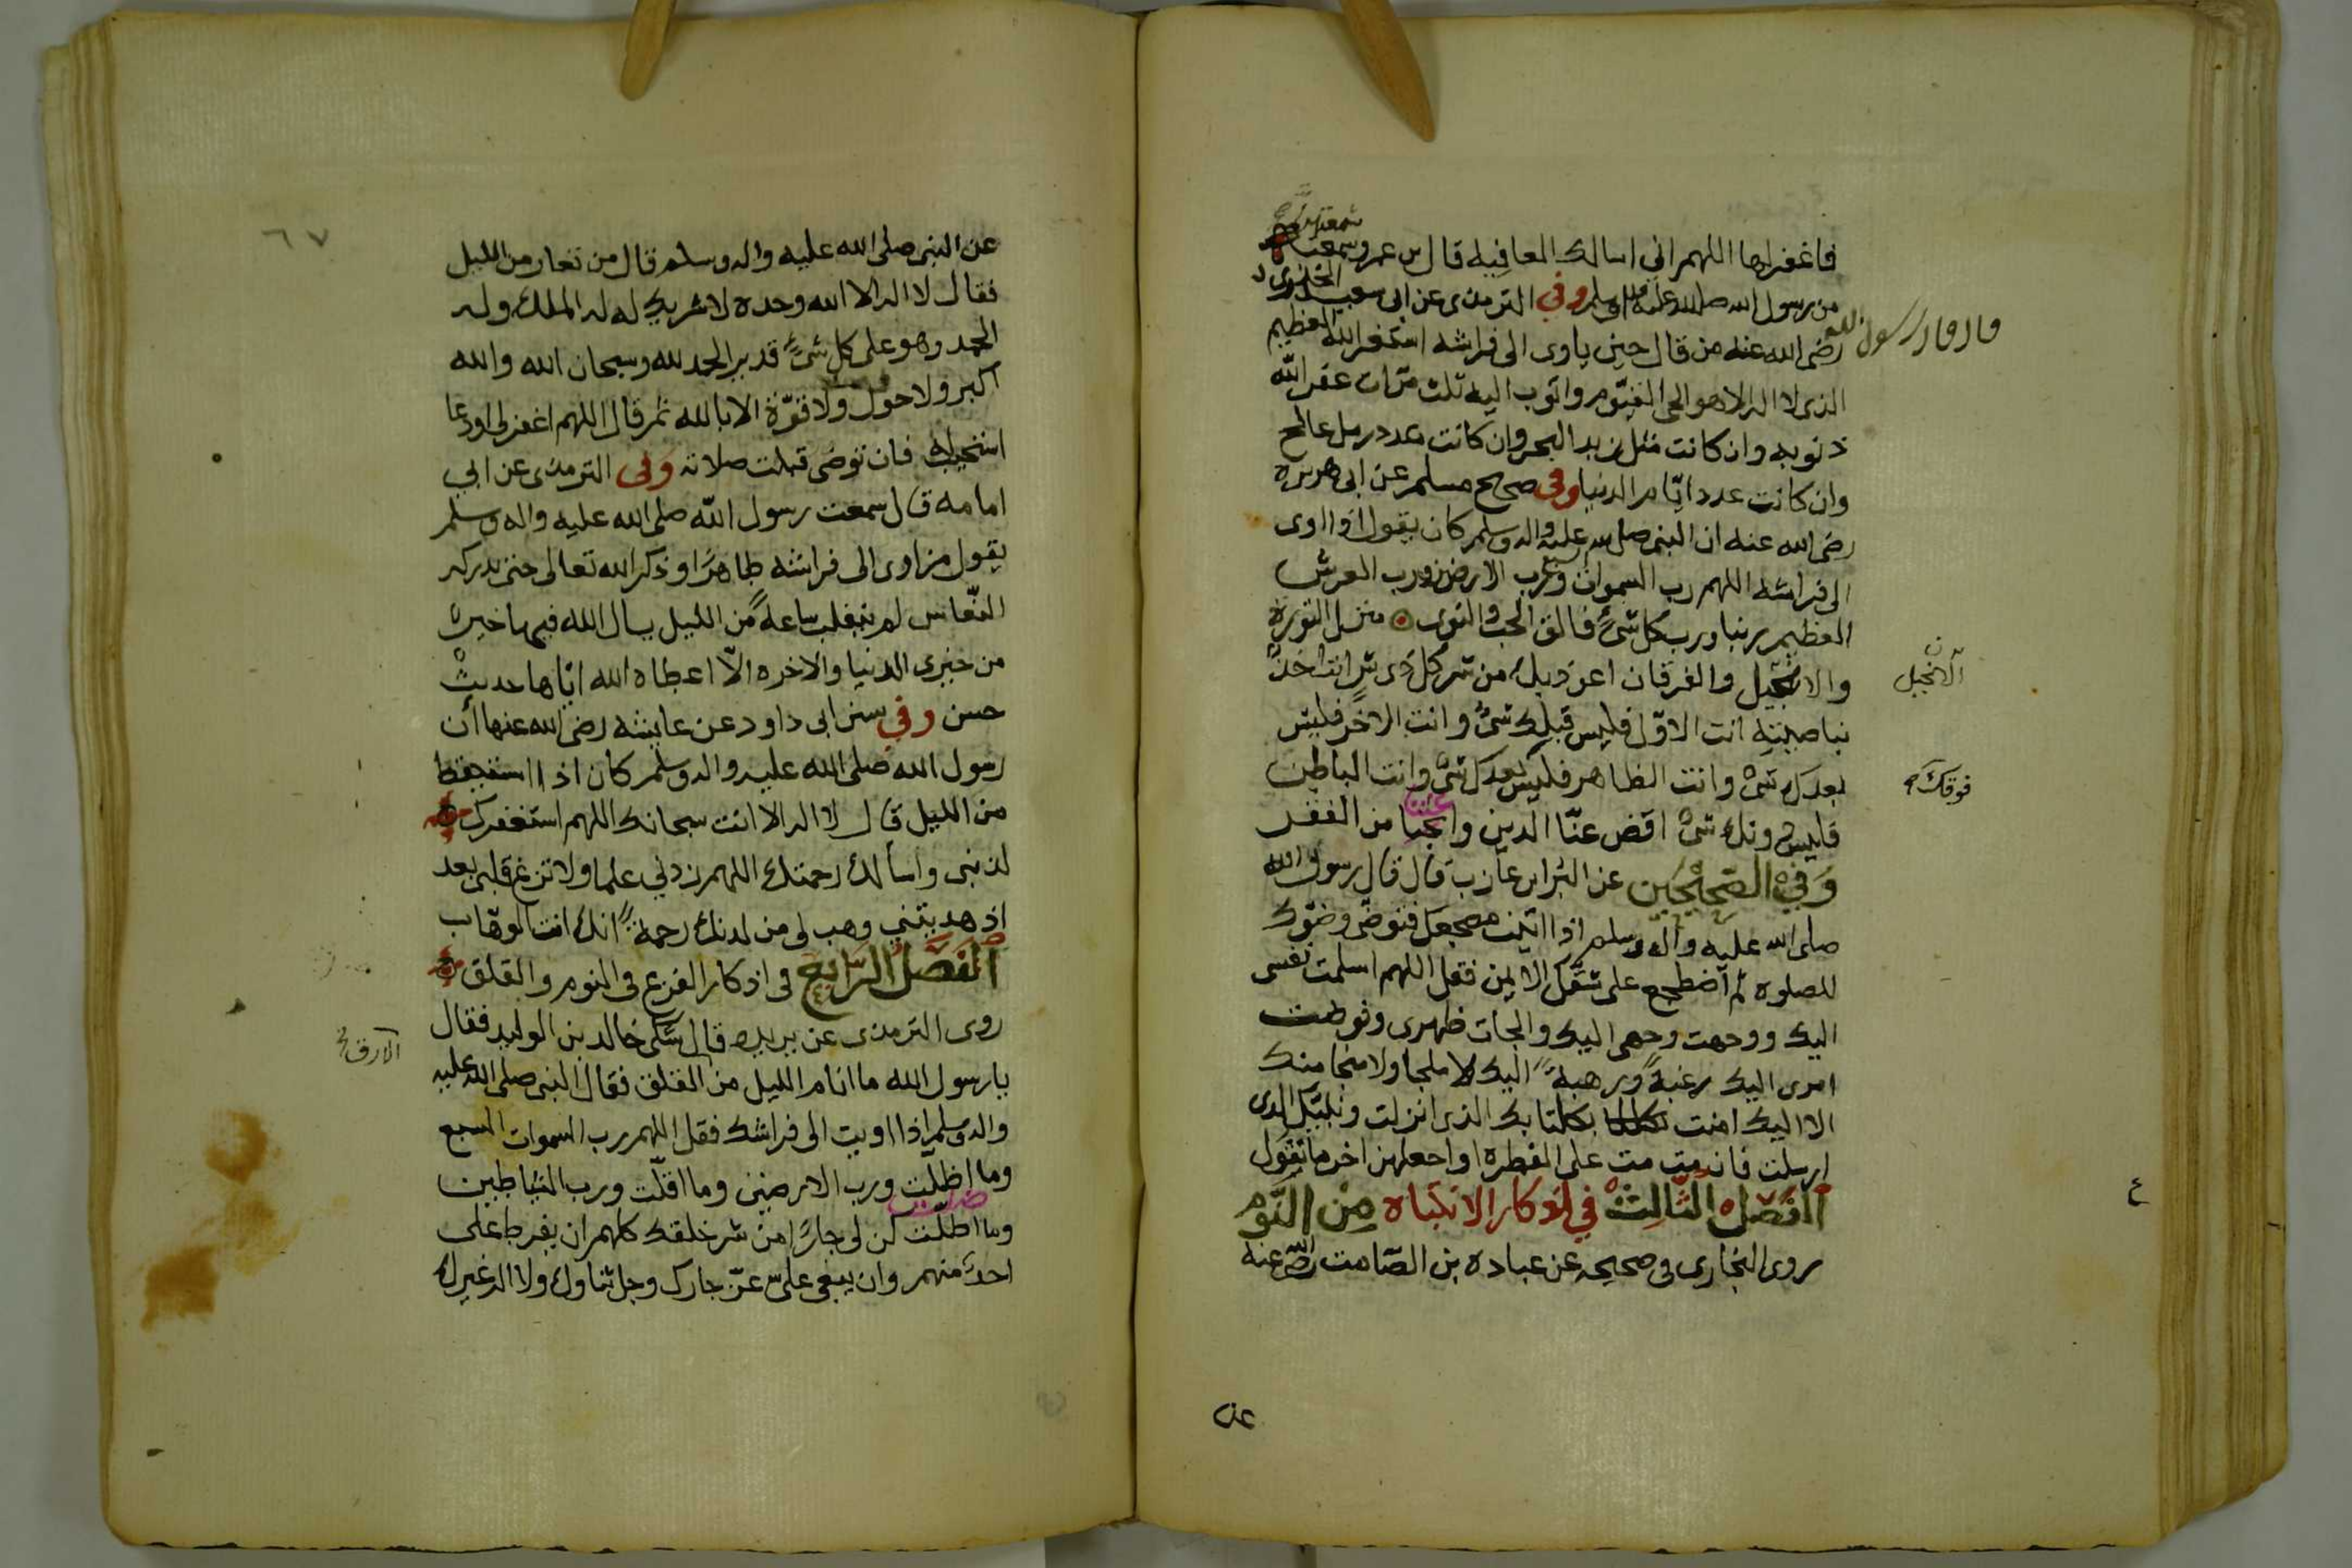 فاغفر لها اللهم اني اسالك العافيه قال بن عمر وسمعت
من رسول الله صلى الله عليه واله وسلم وفي الترمذى عن ابى سعيد الخدرى
قال قال رسول الله
رضى الله عنه من قال حين ياوى الى فراشه استغفر الله العظيم
الذى لا اله الا هو الحى القيّوم واتوب اليه ثلث مرّات غفر اللّه
ذنوبه وان كانت مثل زبد البحر وان كانت عدد رمل عالج
وان كانت عدد ايّام الدنيا وفى صحيح مسلم عن ابى هريره
رضى الله عنه ان النبى صلى الله عليه واله وسلم كان يقول اذا اوى
الى فراشه اللهم رب السموات ورب الارض ورب العرش
العظيم ربنا ورب كل شىً فالق الحب والنوى منزل التوريه
والانجيل والفرقان اعوذ بك من شر كل ذى شر انت اخذ
الانجيل
بناصيته انت الاوّل فليس قبلك شىً وانت الاخر فليس
بعدك شىً وانت الظاهر فليس بعدك شىً وانت الباطن
فوقك
فليس دونك شىً اقض عنّا الدين واغننا من الفقر
وَفي الصّحيحَين عن البُراء بن عازب قال قال رسول الله
صلى الله عليه واله وسلم اذا اتيت مضجعك فتوضى وضوّك
للصلوه ثم اضطجع على شقّك الايمن فقل اللهم اسلمت نفسى
اليك ووجهت وجهى اليك والجات ظهرى وفوضت
امرى اليك رغبةً ورهبةً اليك لا ملجا ولا منجا منك
الا اليك امنت بكتابك الذى انزلت ونبيّك الذى
ارسلت فان مت مت على الفطره واجعلهن اخر ما تقول
الفَصْل الثّالِث في اذكار الانتباه مِنْ النّوم
روى البخارى فى صحيحه عن عباده بن الصّامت رضى الله عنه
عن
٦٧
عن النبى صلى الله عليه واله وسلم قال من تعار من الليل
فقال لا اله الا الله وحده لا شريك له له الملك وله
الحمد وهو على كل شىً قدير الحمد لله وسبحان الله والله
اكبر ولا حول ولا قوّة الا بالله ثم قال اللهم اغفر لى او دعا
استجيب له فان توضى قبلت صلاته وَفى الترمذى عن ابي
امامه قال سمعت رسول اللّه صلى الله عليه واله وسلم
يقول من اوى الى فراشه طاهرًا وذكر الله تعالى حتى يدركه
النّعاس لم ينقلب ساعةً من الليل يسال الله فيها خيرًا
من خيرى الدنيا والاخره الّا اعطاه الله ايّاها حديثٌ
حسن وفي سنن ابى داود عن عايشه رضى الله عنها أن
رسول الله صلى الله عليه واله وسلم كان اذا استيقظ
من الليل قال لا اله الا انت سبحانك اللهم استغفرك
لذنبى واسالك رحمتك اللهم زدني علما ولا تزغ قلبى بعد
اذ هديتني وهب لى من لدنك رحمةً انك انت الوهّاب
الفَصّلُ الرّابِع فى اذكار الفزع فى النوم والقلق
روى الترمذى عن بريده قال شكى خالد بن الوليد فقال
الارق
يا رسول الله ما انام الليل من القلق فقال النبى صلى الله عليه
واله وسلم اذا اويت الى فراشك فقل اللهم رب السموات السبع
وما اظلّت ورب الارضين وما اقلّت ورب الشياطين
وما اضلّت كن لى جارًا من شر خلقك كلهم ان يفرط على
احدٌ منهم وان يبغى علىّ عزّ جارك وجل ثناوك ولا اله غيرك